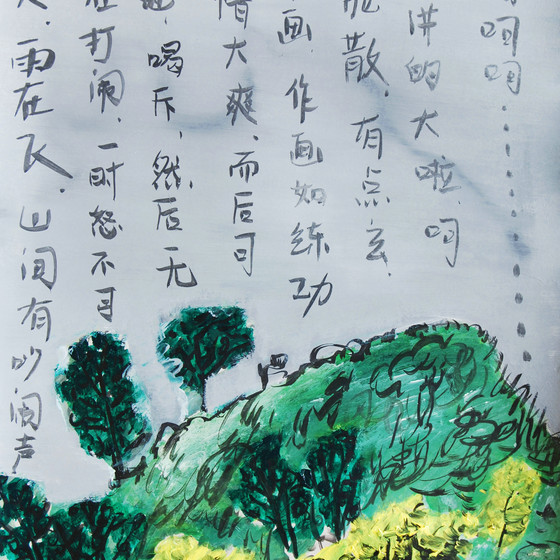 雨在飞，山间有吵闹声
在打闹，一时怒不可
喝斥，然后无
情大爽，而后可
画，作画如练功
散，有点玄，
讲的大啦，呵
呵呵…………